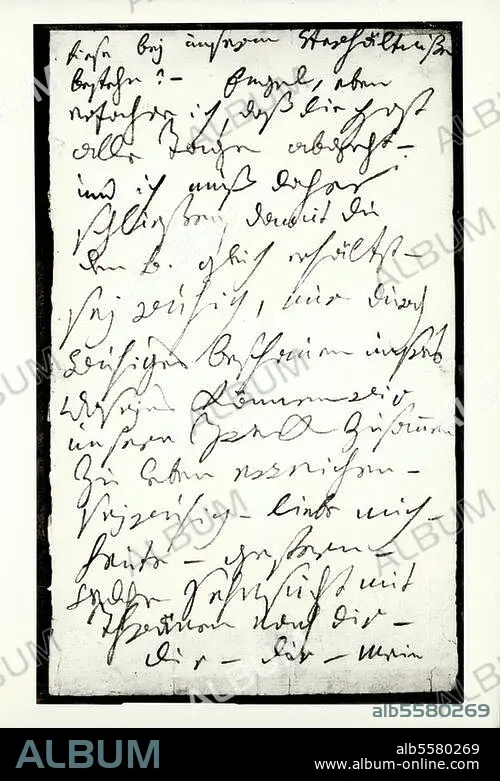 diese bey unserm Verhältniße
bestehn? – Engel, eben
erfahre ich, daß die Post
alle Tage abgeht –
und ich muß daher
schließen, damit du
den B. gleich erhälst –
sey ruhig, nur durch
Ruhiges beschauen unsres
Daseyns können wir
unsern Zweck zusamen
zu leben erreichen –
sey ruhig – liebe mich –
heute – gestern –
Welche Sehnsucht mit
Thränen nach dir –
dir – dir – mein
ALBUM
alb5580269
ALBUM
alb5580269
www.album-online.com